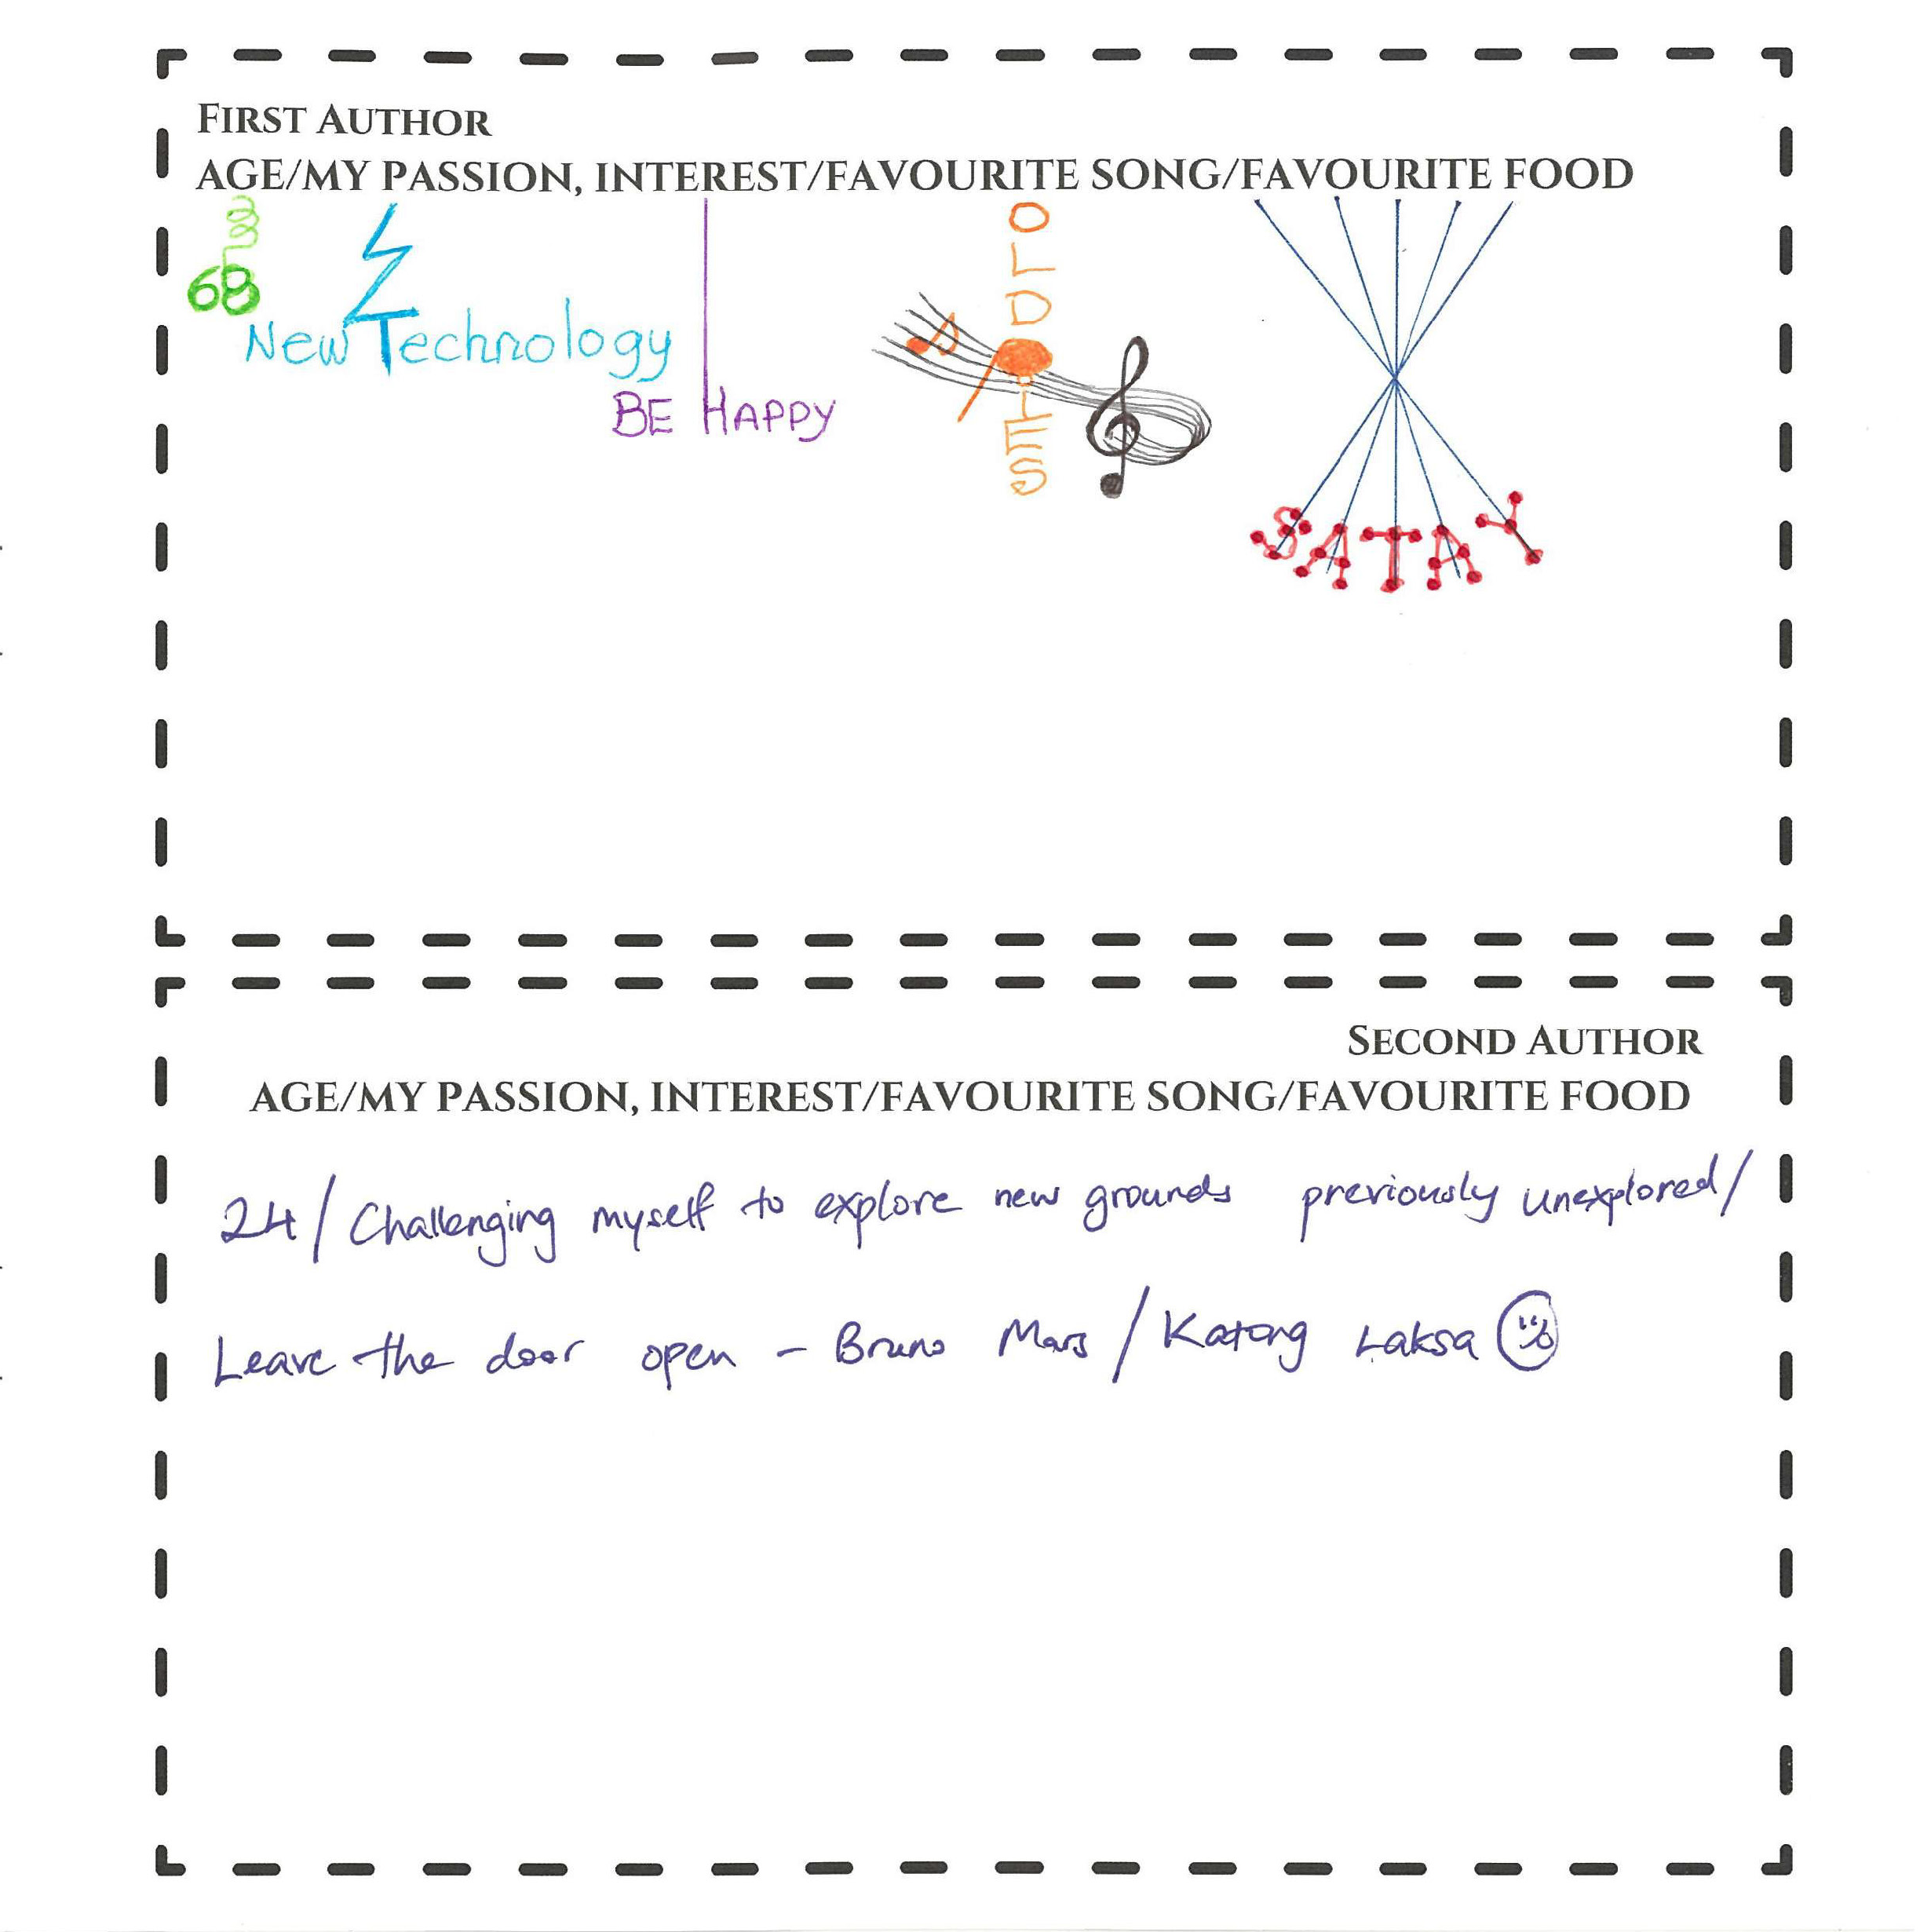 FIRST AUTHOR
AGE/MY PASSION, INTEREST/FAVOURITE SONG/FAVOURITE FOOD
68
New Technology
BE HAPPY
OLDIES
SATAY
SECOND AUTHOR
AGE/MY PASSION, INTEREST/FAVOURITE SONG/FAVOURITE FOOD
24/Challenging myself to explore new grounds previously unexplored/
Leave the door open - Bruno Mars / Katong Laksa